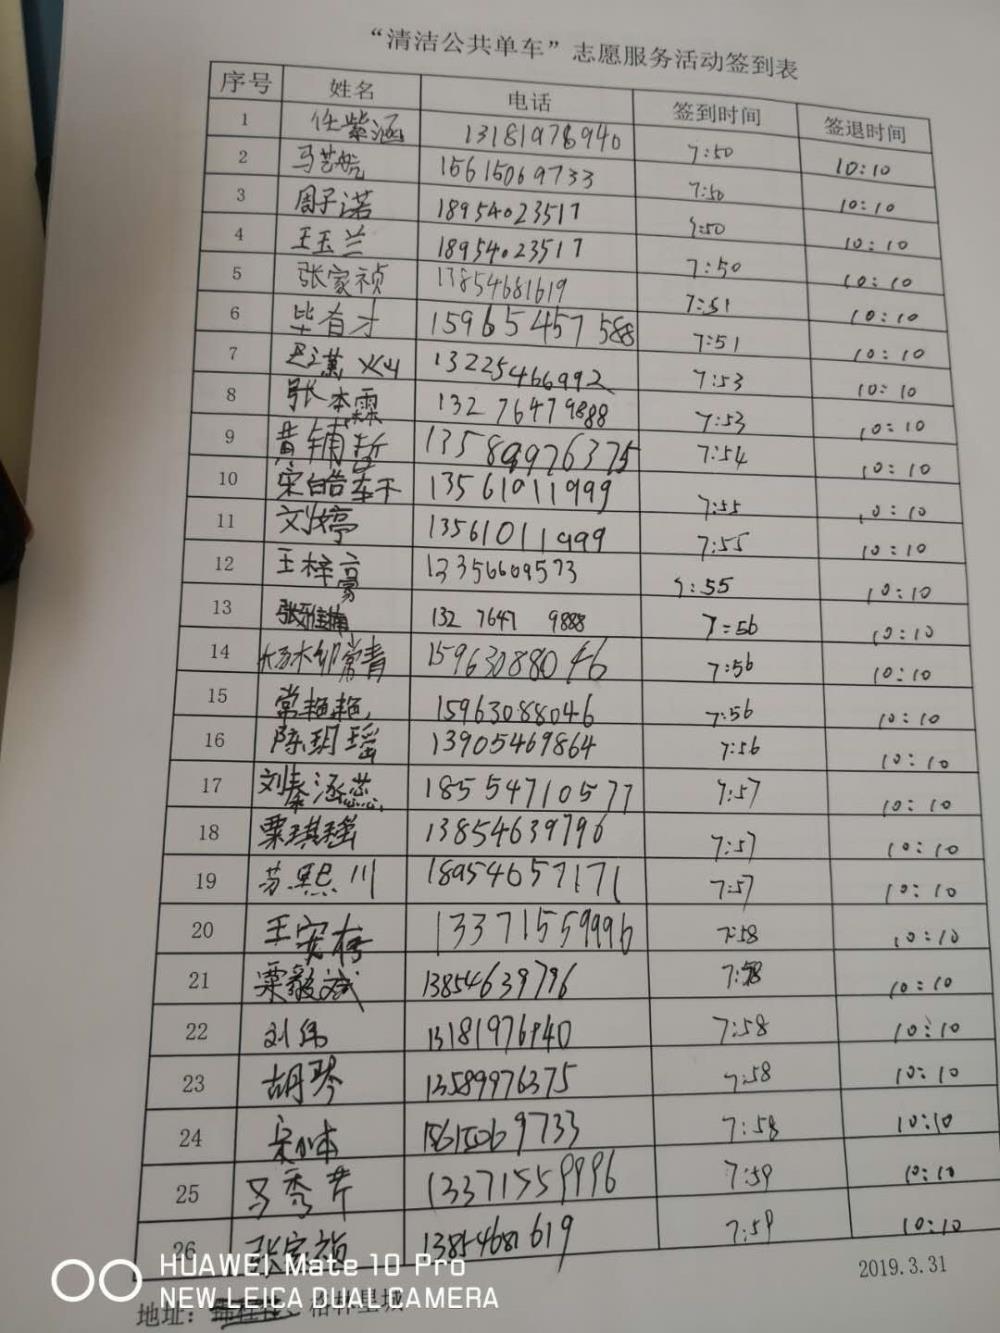 “清洁公共单车”志愿服务活动签到表
序号 姓名 电话 签到时间 签退时间
1 任紫涵 13181976940 7:50 10:10
2 马艺航 15615069733 7:50 10:10
3 周子诺 18954023517 7:50 10:10
4 王玉兰 18954023517 7:50 10:10
5 张家祯 13854681619 7:51 10:10
6 毕有才 15965457588 7:51 10:10
7 13225466992 7:53 10:10
8 张本霖 132 7647 9888 7:53 10:10
9 黄铺哲 13589976375 7:54 10:10
10 宋皓 13561011999 7:55 10:10
11 刘婷 13561011999 7:55 10:10
12 王梓豪 12356609573 7:55 10:10
13 132 7647 9888 7:56 10:10
14 杨木卿常青 15963088046 7:56 10:10
15 常艳艳 15963088046 7:56 10:10
16 陈玥瑶 13905469864 7:56 10:10
17 刘秦涵蕊 18554710577 7:57 10:10
18 粟琪瑶 13854639796 7:57 10:10
19 苏熙川 18954657171 7:57 10:10
20 王安 13371559996 7:58 10:10
21 粟毅斌 13854639796 7:58 10:10
22 刘伟 13181976940 7:58 10:10
23 胡琴 13589976375 7:58 10:10
24 15615069733 7:58 10:10
25 马秀芹 13371559996 7:59 10:10
26 张家祯 13854681619 7:59 10:10
2019.3.31
HUAWEI Mate 10 Pro
NEW LEICA DUAL CAMERA
地址： 格林星城